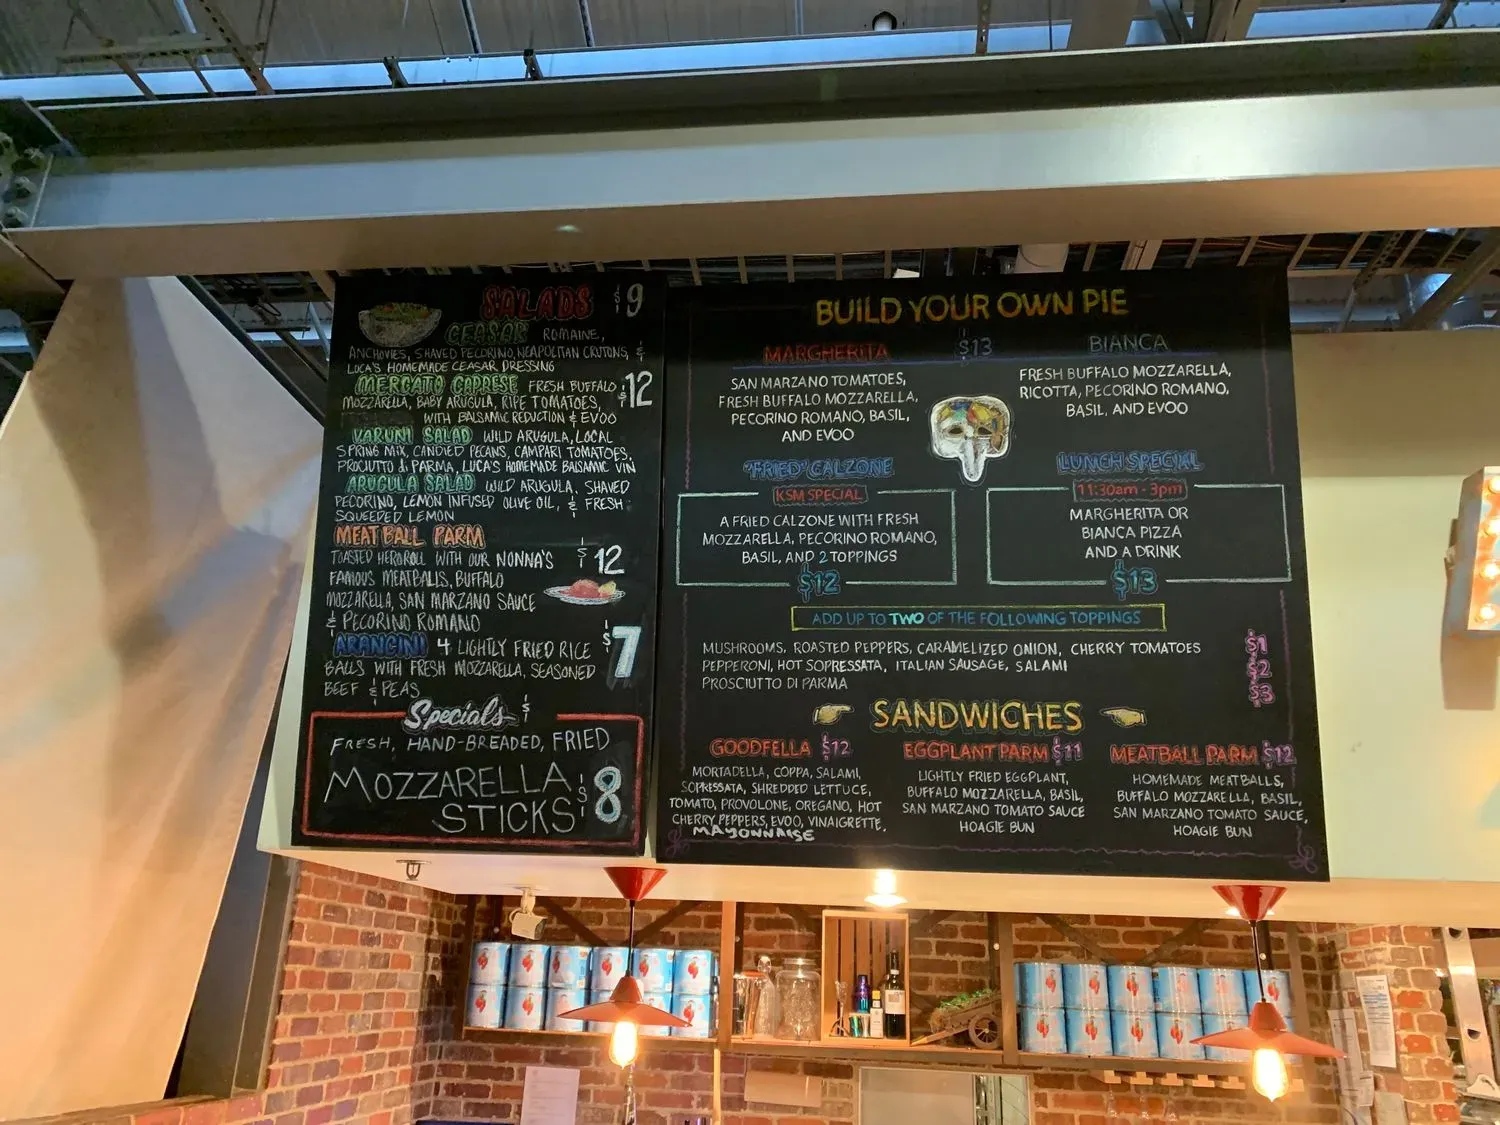 SALADS $9
CEASAR ROMAINE,
ANCHOVIES, SHAVED PECORINO, NEAPOLITAN CRUTONS, &
LUCA'S HOMEMADE CEASAR DRESSING
MERCATO CAPRESE FRESH BUFFALO $12
MOZZARELLA, BABY ARUGULA, RIPE TOMATOES,
WITH BALSAMIC REDUCTION & EVOO
VARUNI SALAD WILD ARUGULA, LOCAL
SPRING MIX, CANDIED PECANS, CAMPARI TOMATOES,
PROCIUTTO di PARMA, LUCA'S HOMEMADE BALSAMIC VIN
ARUGULA SALAD WILD ARUGULA, SHAVED
PECORINO, LEMON INFUSED OLIVE OIL, & FRESH
SQUEEDED LEMON
MEATBALL PARM
TOASTED HEROROLL WITH OUR NONNA'S $12
FAMOUS MEATBALLS, BUFFALO
MOZZARELLA, SAN MARZANO SAUCE
& PECORINO ROMANO
ARANCINI 4 LIGHTLY FRIED RICE $7
BALLS WITH FRESH MOZZARELLA, SEASONED
BEEF & PEAS
Specials $
FRESH, HAND-BREADED, FRIED
MOZZARELLA
STICKS $8
BUILD YOUR OWN PIE
MARGHERITA $13 BIANCA
SAN MARZANO TOMATOES,
FRESH BUFFALO MOZZARELLA,
PECORINO ROMANO, BASIL,
AND EVOO
FRESH BUFFALO MOZZARELLA,
RICOTTA, PECORINO ROMANO,
BASIL, AND EVOO
"FRIED" CALZONE
KSM SPECIAL
A FRIED CALZONE WITH FRESH
MOZZARELLA, PECORINO ROMANO,
BASIL, AND 2 TOPPINGS
$12
LUNCH SPECIAL
11:30am - 3pm
MARGHERITA OR
BIANCA PIZZA
AND A DRINK
$13
ADD UP TO TWO OF THE FOLLOWING TOPPINGS
MUSHROOMS, ROASTED PEPPERS, CARAMELIZED ONION, CHERRY TOMATOES $1
PEPPERONI, HOT SOPRESSATA, ITALIAN SAUSAGE, SALAMI $2
PROSCIUTTO DI PARMA $3
SANDWICHES
GOODFELLA $12
MORTADELLA, COPPA, SALAMI,
SOPRESSATA, SHREDDED LETTUCE,
TOMATO, PROVOLONE, OREGANO, HOT
CHERRY PEPPERS, EVOO, VINAIGRETTE,
MAYONNAISE
EGGPLANT PARM $11
LIGHTLY FRIED EGGPLANT,
BUFFALO MOZZARELLA, BASIL,
SAN MARZANO TOMATO SAUCE
HOAGIE BUN
MEATBALL PARM $12
HOMEMADE MEATBALLS,
BUFFALO MOZZARELLA, BASIL,
SAN MARZANO TOMATO SAUCE,
HOAGIE BUN